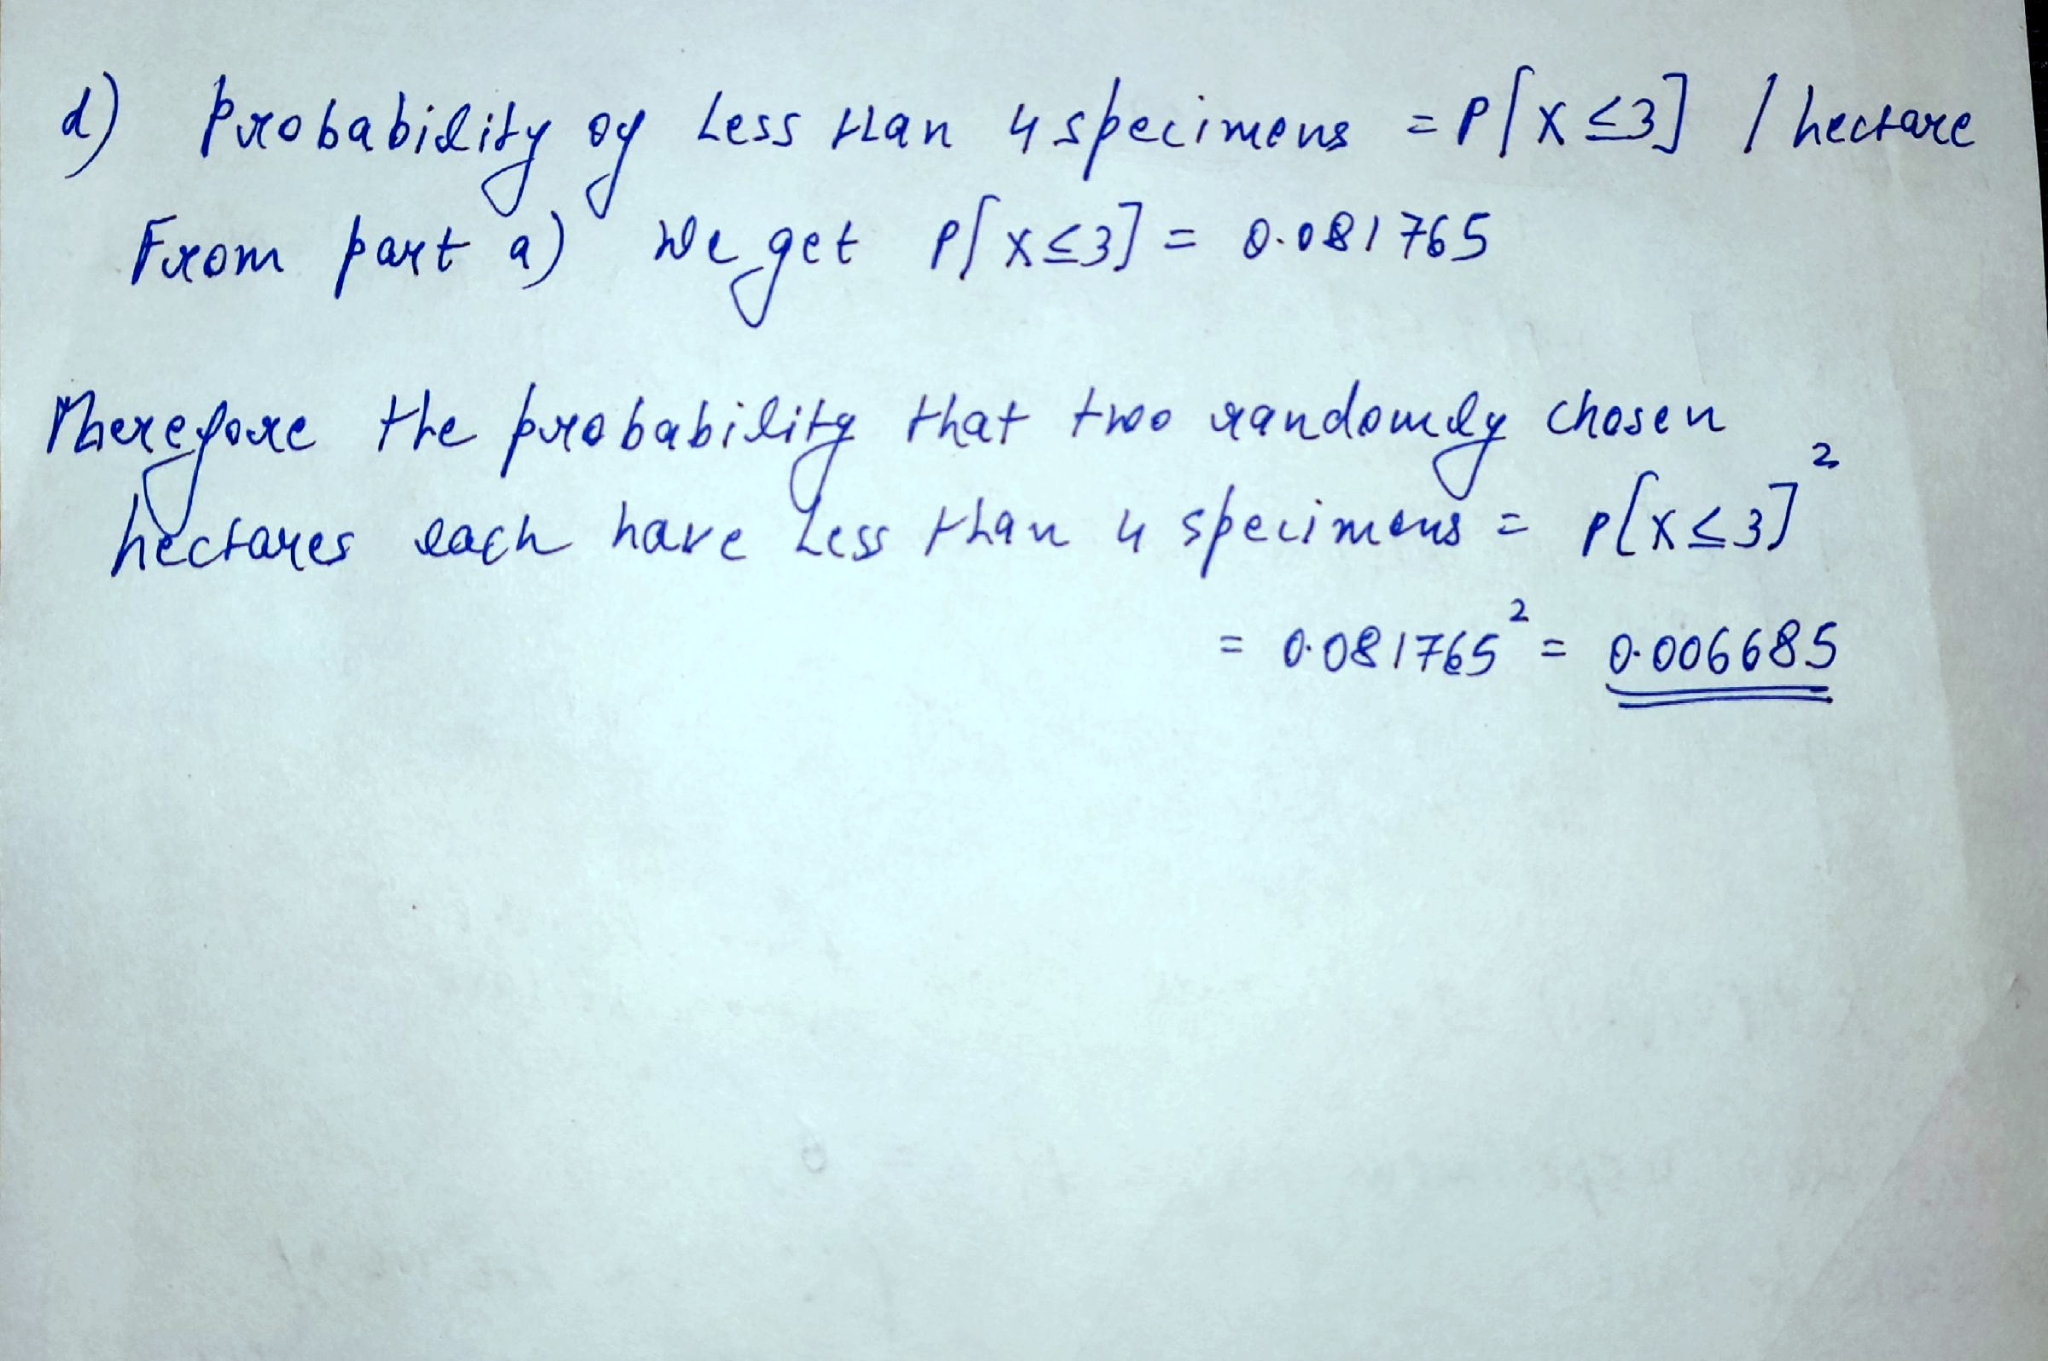 d) Probability of Less than 4 specimens = P[X ≤ 3] / hectare
From part a) We get P[X ≤ 3] = 0.081765
Therefore the probability that two randomly chosen
hectares each have Less than 4 specimens = P[X ≤ 3]²
= 0.081765² = 0.006685